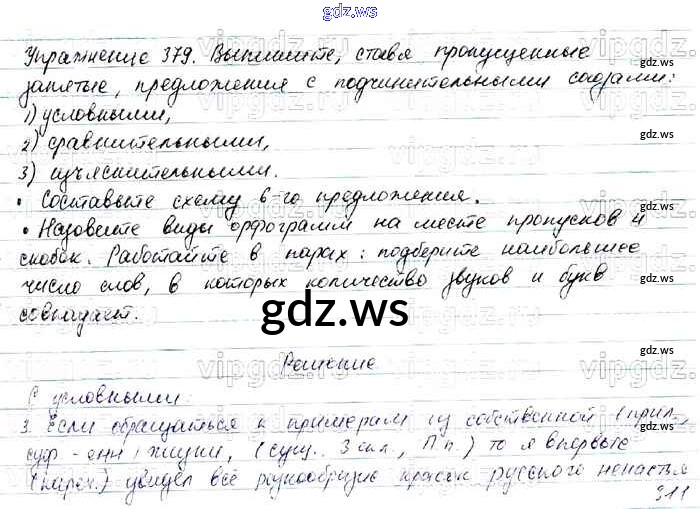 gdz.ws
Упражнение 379. Выпишите, ставя пропущенные
запятые, предложения с подчинительными союзами:
1) условными,
2) сравнительными,
3) изъяснительными.
• Составьте схему 6-го предложения.
• Назовите виды орфограмм на месте пропусков и
скобок. Работайте в парах: подберите наибольшее
число слов, в которых количество звуков и букв
совпадает.
gdz.ws
Решение
С условными:
3. Если обращаться к примерам из собственной (прил.,
суф -енн) жизни, (сущ., 3 скл., П.п.) то я впервые
(нареч.) увидел всё разнообразие красок русского ненастья
311